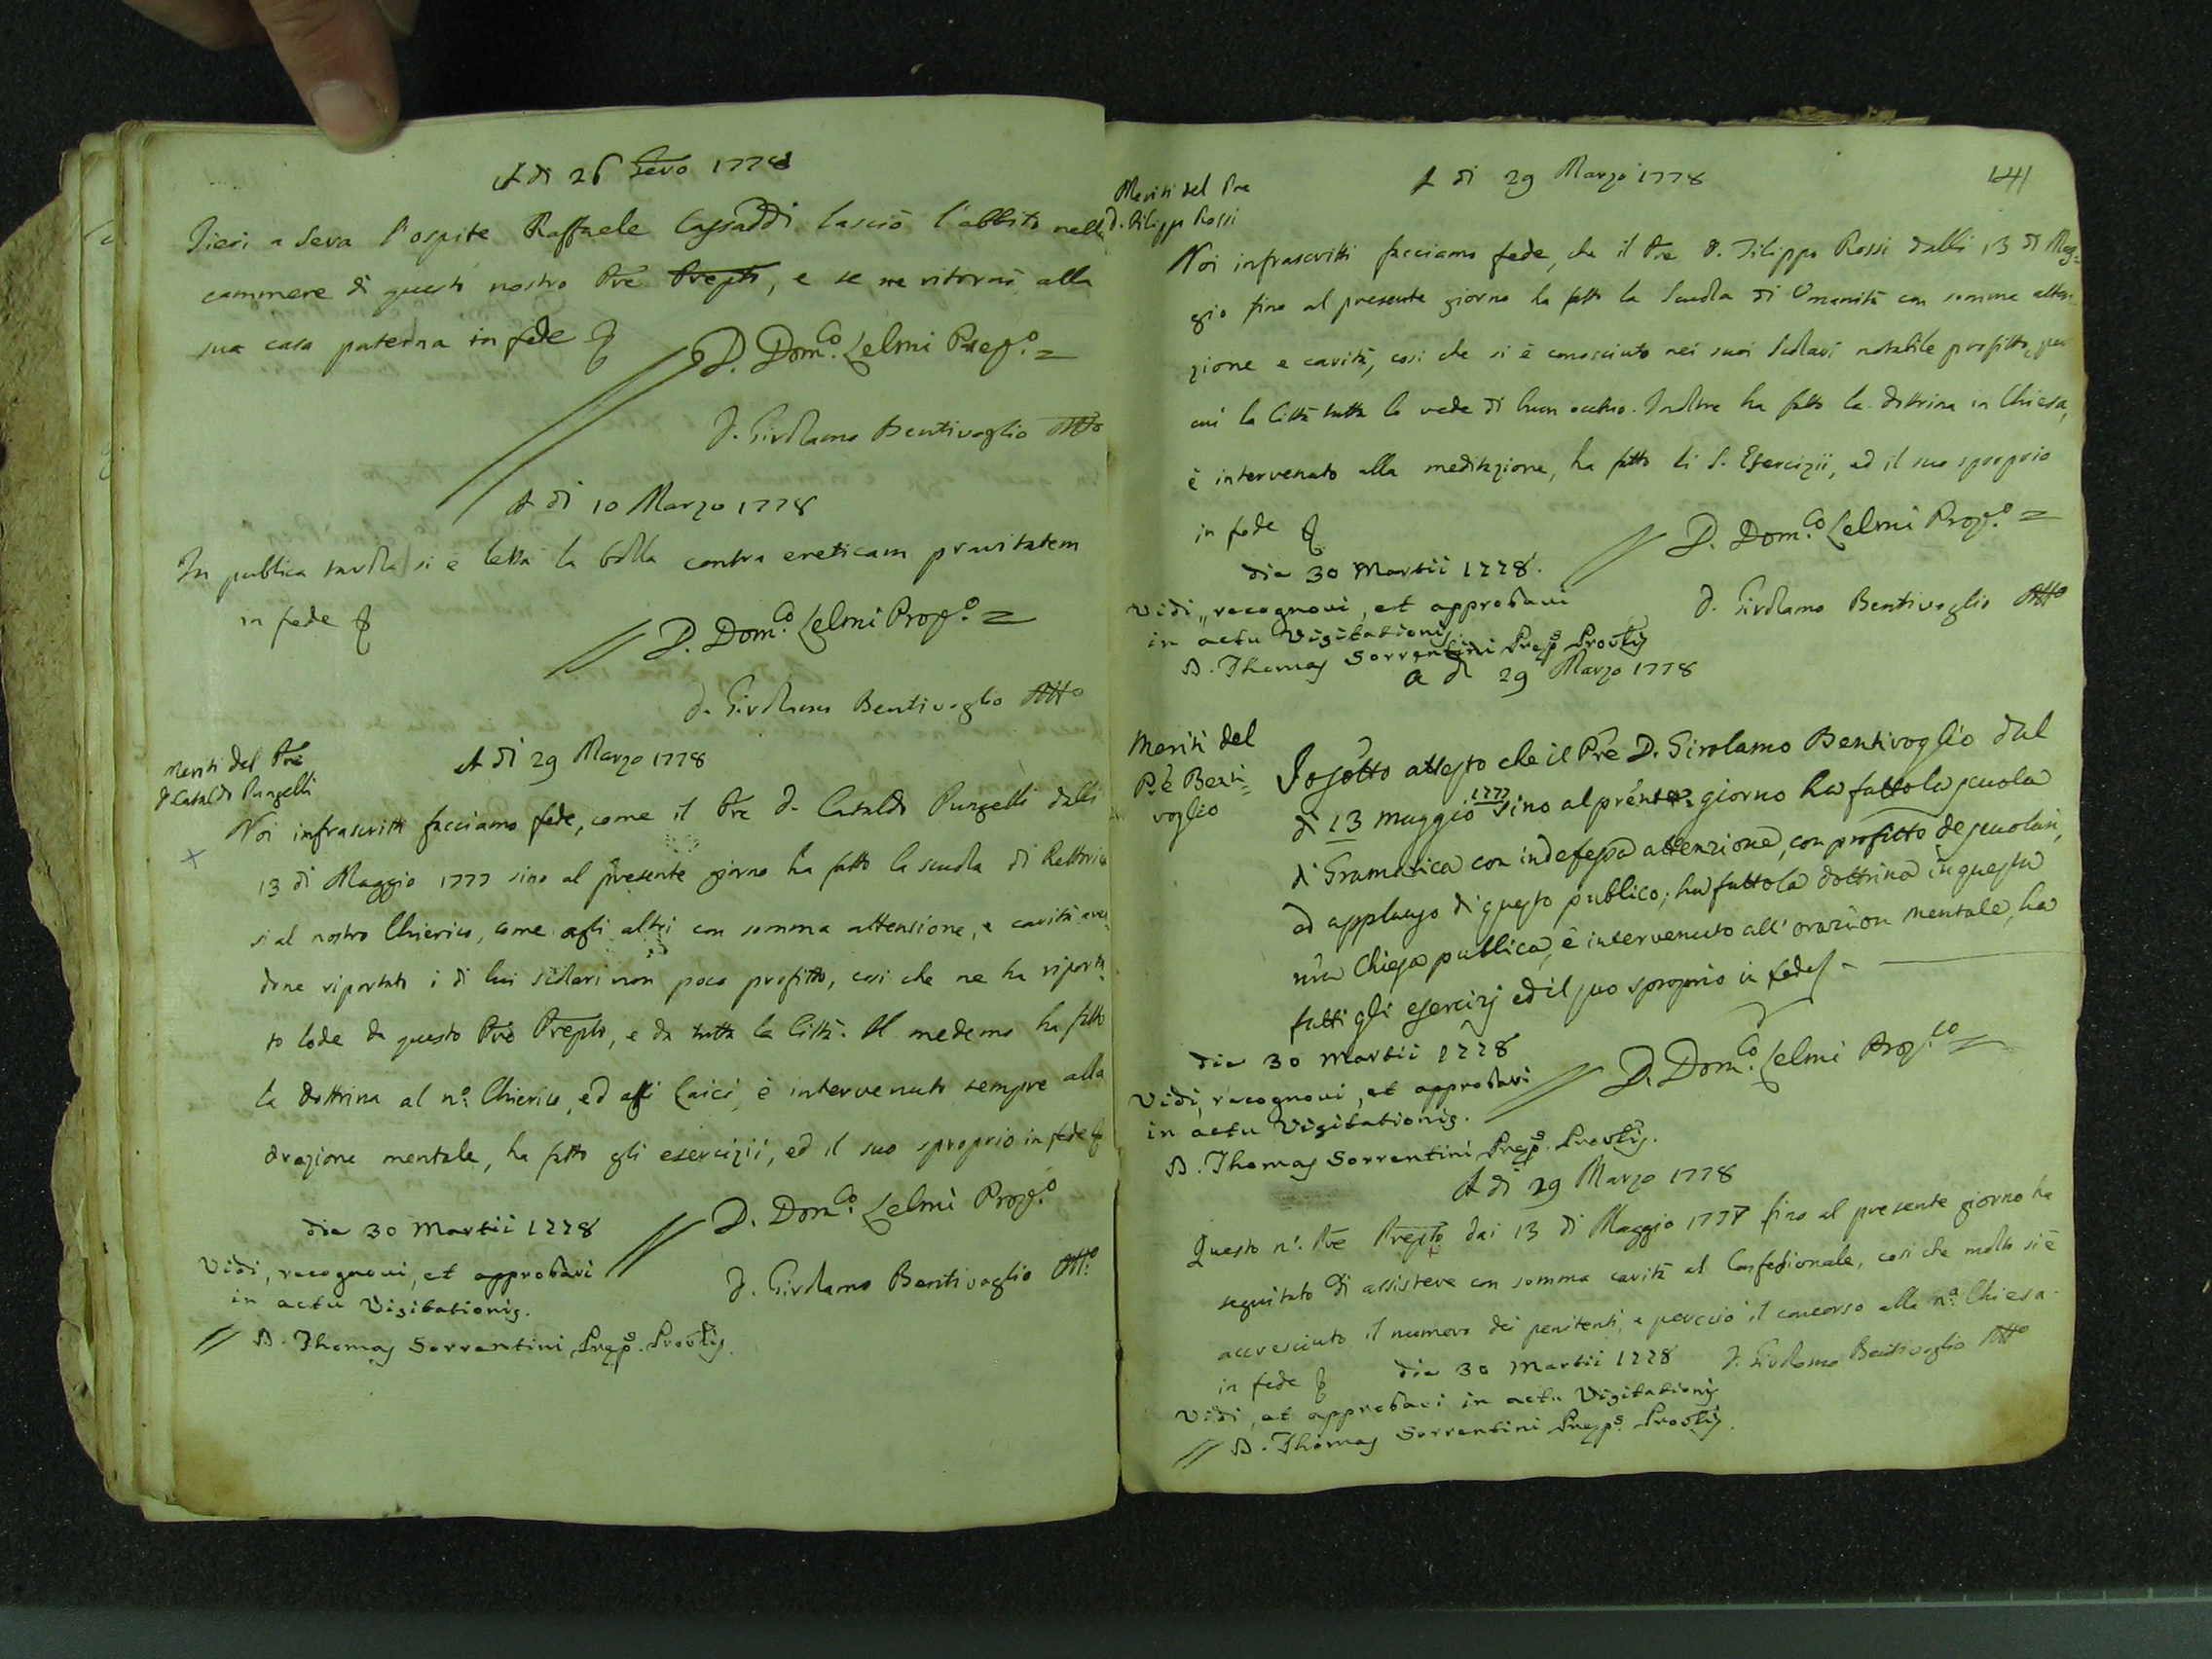 A di 26 Gen̄o 1778
Iieri a sera l'ospite Raffaele lasciò l'abbito nelle
cammere di questo nostro Pre Prepto, e se ne ritornò alla
sua casa paterna in fede
D. Domco. Lelmi Prepo. =
D. Girolamo Bentivoglio Atto
A di 10 Marzo 1778
In publica tavola si è letta la bolla contra ereticam pravitatem
in fede
D. Domco. Lelmi Propo. =
D. Girolamo Bentivoglio Atto
A di 29 Marzo 1778
Meriti del Pre
D Cataldo Punzelli
Noi infrascritti facciamo fede, come il Pre D. Cataldo Punzelli dalli
13 di Maggio 1777 sino al presente giorno ha fatto la scuola di Rettorica
si al nostro Chierico, come agli altri con somma attensione, e carità aven
done riportato i di lui scolari non poco profitto, così che ne ha riporta
to lode da questo Pre Prepto, e da tutta la Città. Il medemo ha fatto
la dottrina al no. Chierico, ed alli Laici, è intervenuto sempre alla
orazione mentale, ha fatto gli esercizii, ed il suo sproprio in fede
D. Domco. Lelmi Propo.
die 30 Martii 1778
Vidi, recognovi, et approbavi
in actu Visitationis.
D. Girolamo Bentivoglio Atto
// D. Thomas Sorrentini Prep̄s. Provlis.
141
A di 29 Marzo 1778
Meriti del Pre
D. Filippo Rossi
Noi infrascritti facciamo fede, che il Pre D. Filippo Rossi dalli 13 di Mag=
gio fino al presente giorno ha fatto la Scuola di Umanità con somma atten
zione e carità, così che si è conosciuto nei suoi Scolari notabile profitto, per
cui la Città tutta lo vede di buon occhio. Inoltre ha fatto la dottrina in Chiesa,
è intervenuto alla meditazione, ha fatto li S. Esercizii, ed il suo sproprio
in fede
D. Domco. Lelmi Propo. =
die 30 Martii 1778.
Vidi, recognovi, et approbavi
in actu Visitationis.
D. Girolamo Bentivoglio Atto
D. Thomas Sorrentini Preps Provlis
a di 29 Marzo 1778
Meriti del
P.e Benti=
voglio
Io sotto attesto che il Pre D. Girolamo Bentivoglio dal
di 13 maggio 1777 sino al pre̅nte giorno ha fatto la scuola
di Gramatica con indefessa attenzione, con profitto de scuolari,
ed applauso di questo publico; ha fatto la dottrina in questa
nrā Chiesa publica, è intervenuto all'orazion mentale, ha
fatti gli esercizj ed il suo sproprio in fede
D. Domco. Lelmi Propto =
die 30 Martii 1778
Vidi, recognovi, et approbavi
in actu Visitationis.
D. Thomas Sorrentini Preps. Provlis.
A di 29 Marzo 1778
Questo no. Pre Prepto dai 13 di Maggio 1777 fino al presente giorno ha
seguitato di assistere con somma carità al Confesionale, così che molto si è
accresciuto il numero dei penitenti, e perciò il concorso alla na. Chiesa
in fede
D. Girolamo Bentivoglio Atto
die 30 Martii 1778
Vidi, et approbavi in actu Visitationis
// D. Thomas Sorrentini Preps. Provlis.